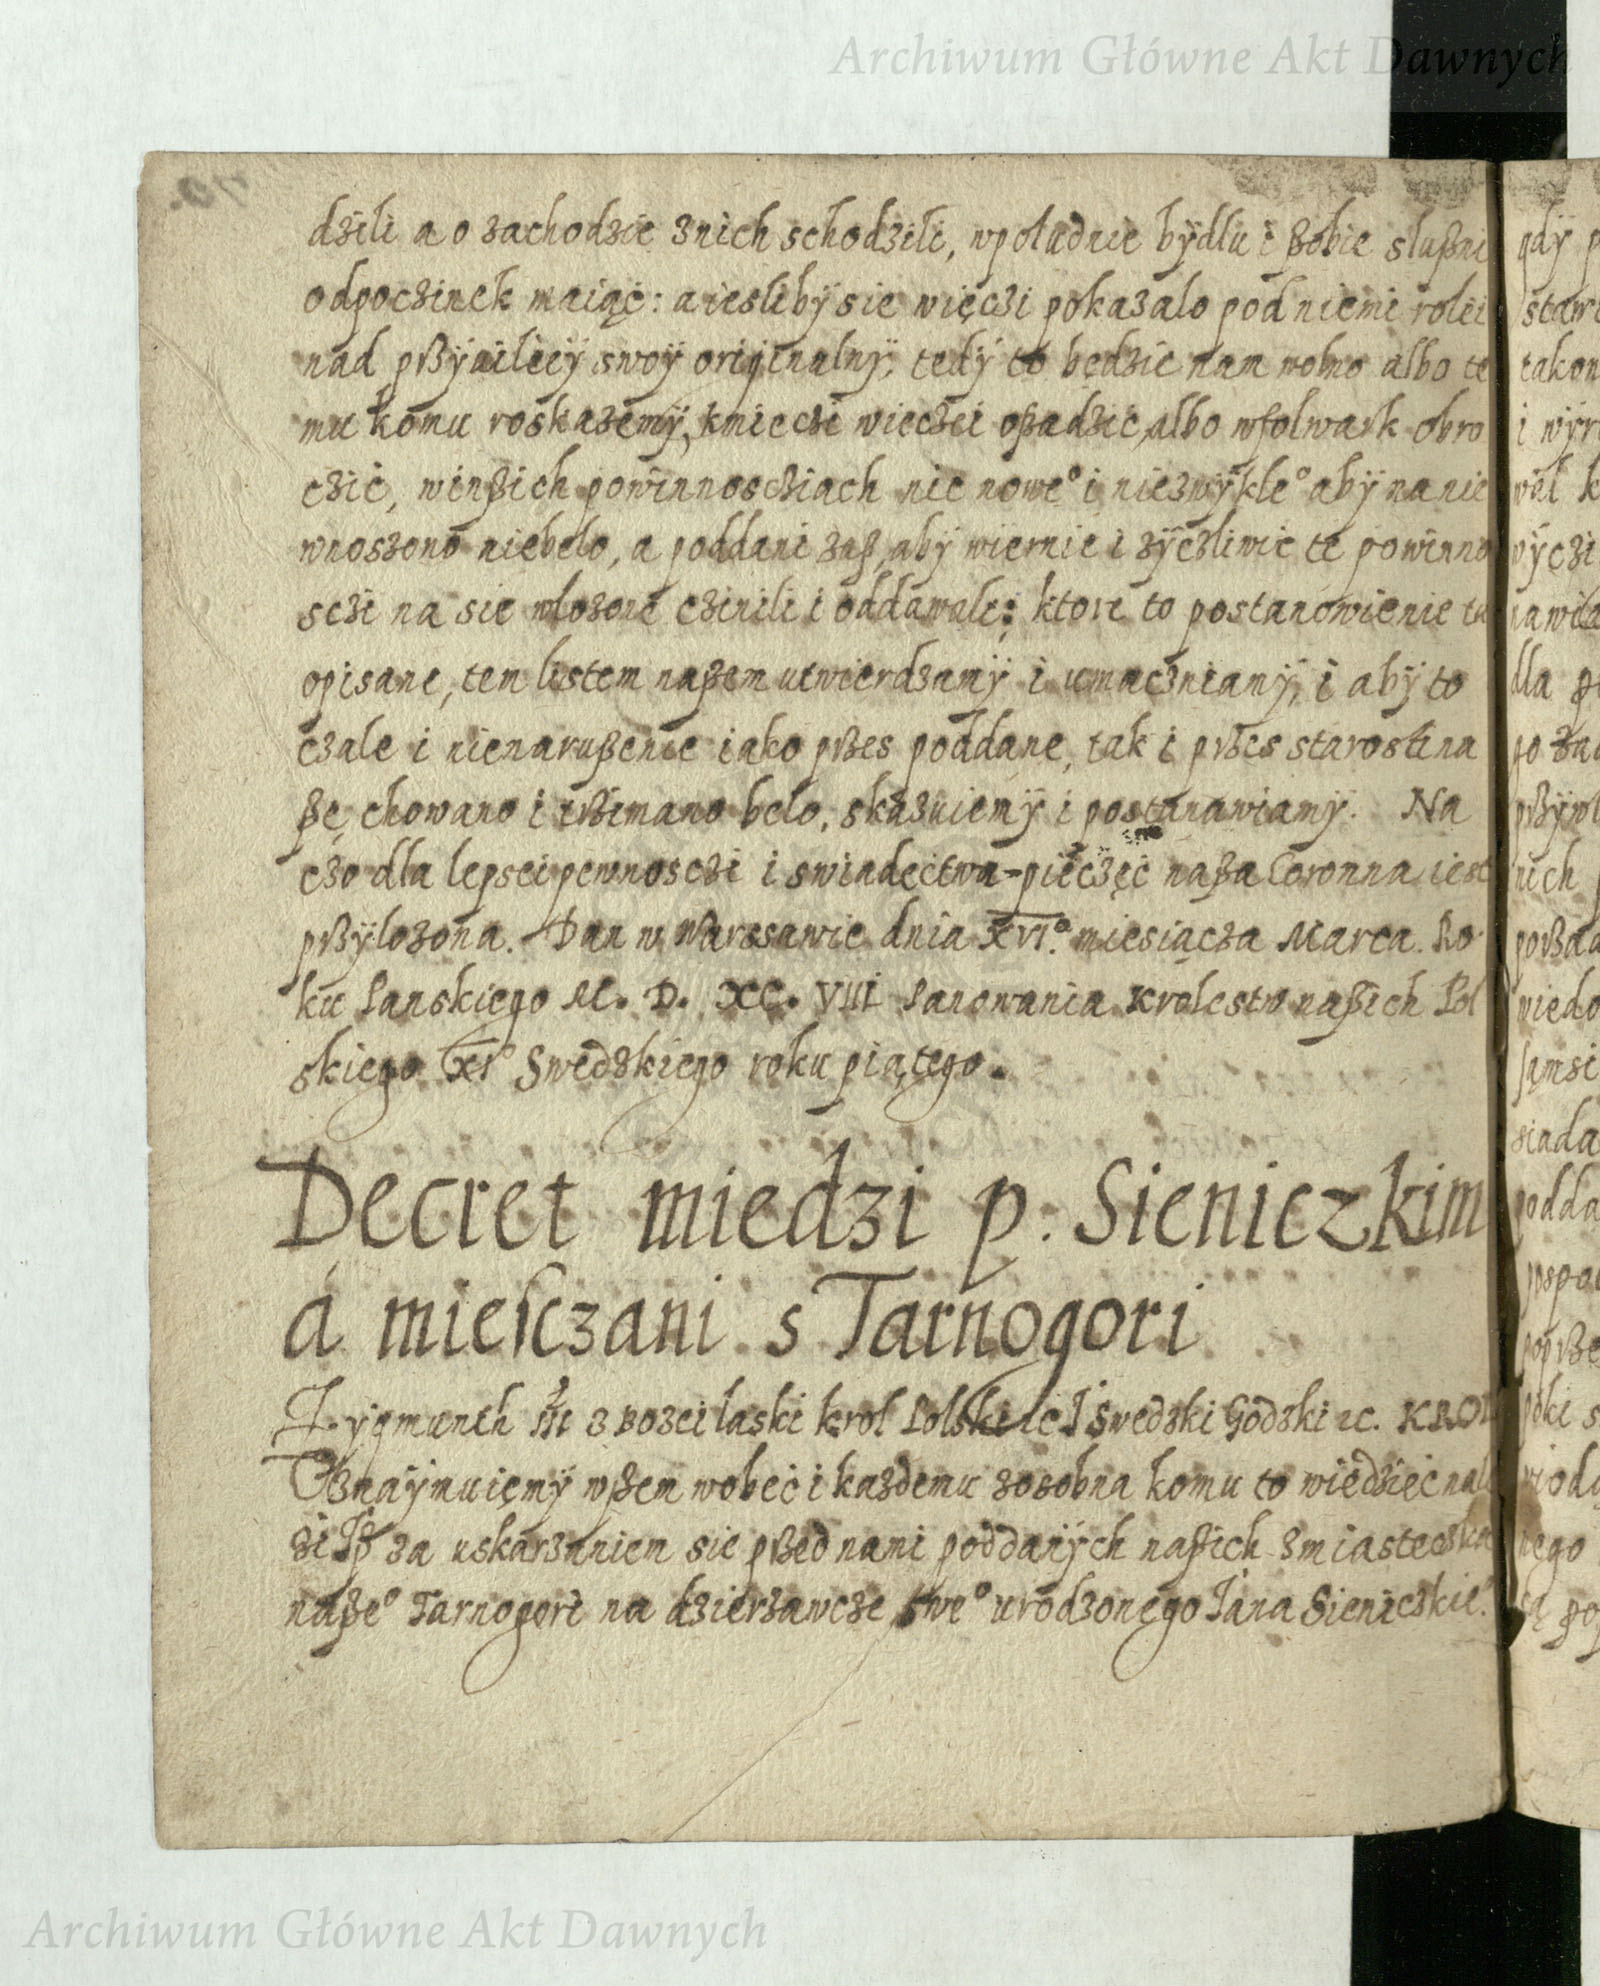 Archiwum Główne Akt Dawnych
dzili a o zachodzie znich schodzili, wpołudnie bÿdlu i ßobie slußni
odpoczinek maiąć: a ieslibÿ sie więczi pokazalo pod niemi rolei
nad prßÿwileiÿ swoÿ orijinalnÿ, tedÿ to będzie nam wolno albo te
mu komu roskazemÿ, kmieczi wieczei oßadzić, albo wfolwark obro
czić, winßich powinnoscziach nic noweº i niezwÿkleº abÿ na nie
wnoszono niebelo, a poddani zaß, abÿ wiernie i zÿczliwie te powinno
sczi na sie wlozone czinili i oddawali: ktore to postanowienie tu
opisane, tem listem naßem utwierdzamÿ i umaczniamÿ, i abÿ to
czale i nienarußenie iako przes poddane, tak i przes starosti na
ße, chowano i trzimano belo, skazuiemÿ i postanawiamÿ. Na
czo dla lepsei pewnosczi i swiadectwa pieczęć naßa Coronna iest
prßÿlozona. Dan w Warssawie dnia XVI.º miesiącza Marca. Ro
ku Panskiego M. D. XC. VIII Panowania Krolestw naßich Pol
skiego XIº Swedzkiego roku piątego.
Decret miedzi p. Sieniczkim
a miesczani s Tarnogori
Zÿgmunth III z Bozei laski krol Polski ic I Swedzki Godzki ic. KROL
Oznaÿmuiemÿ wßem wobeć i kazdemu zosobna komu to wiedzieć nale
zi Iß za uskarzaniem sie przed nami poddanÿch naßich zmiasteczka
naßeº Tarnogori na dzierzawcze sweº urodzonego Iana Sieniczkieº.
Archiwum Główne Akt Dawnych